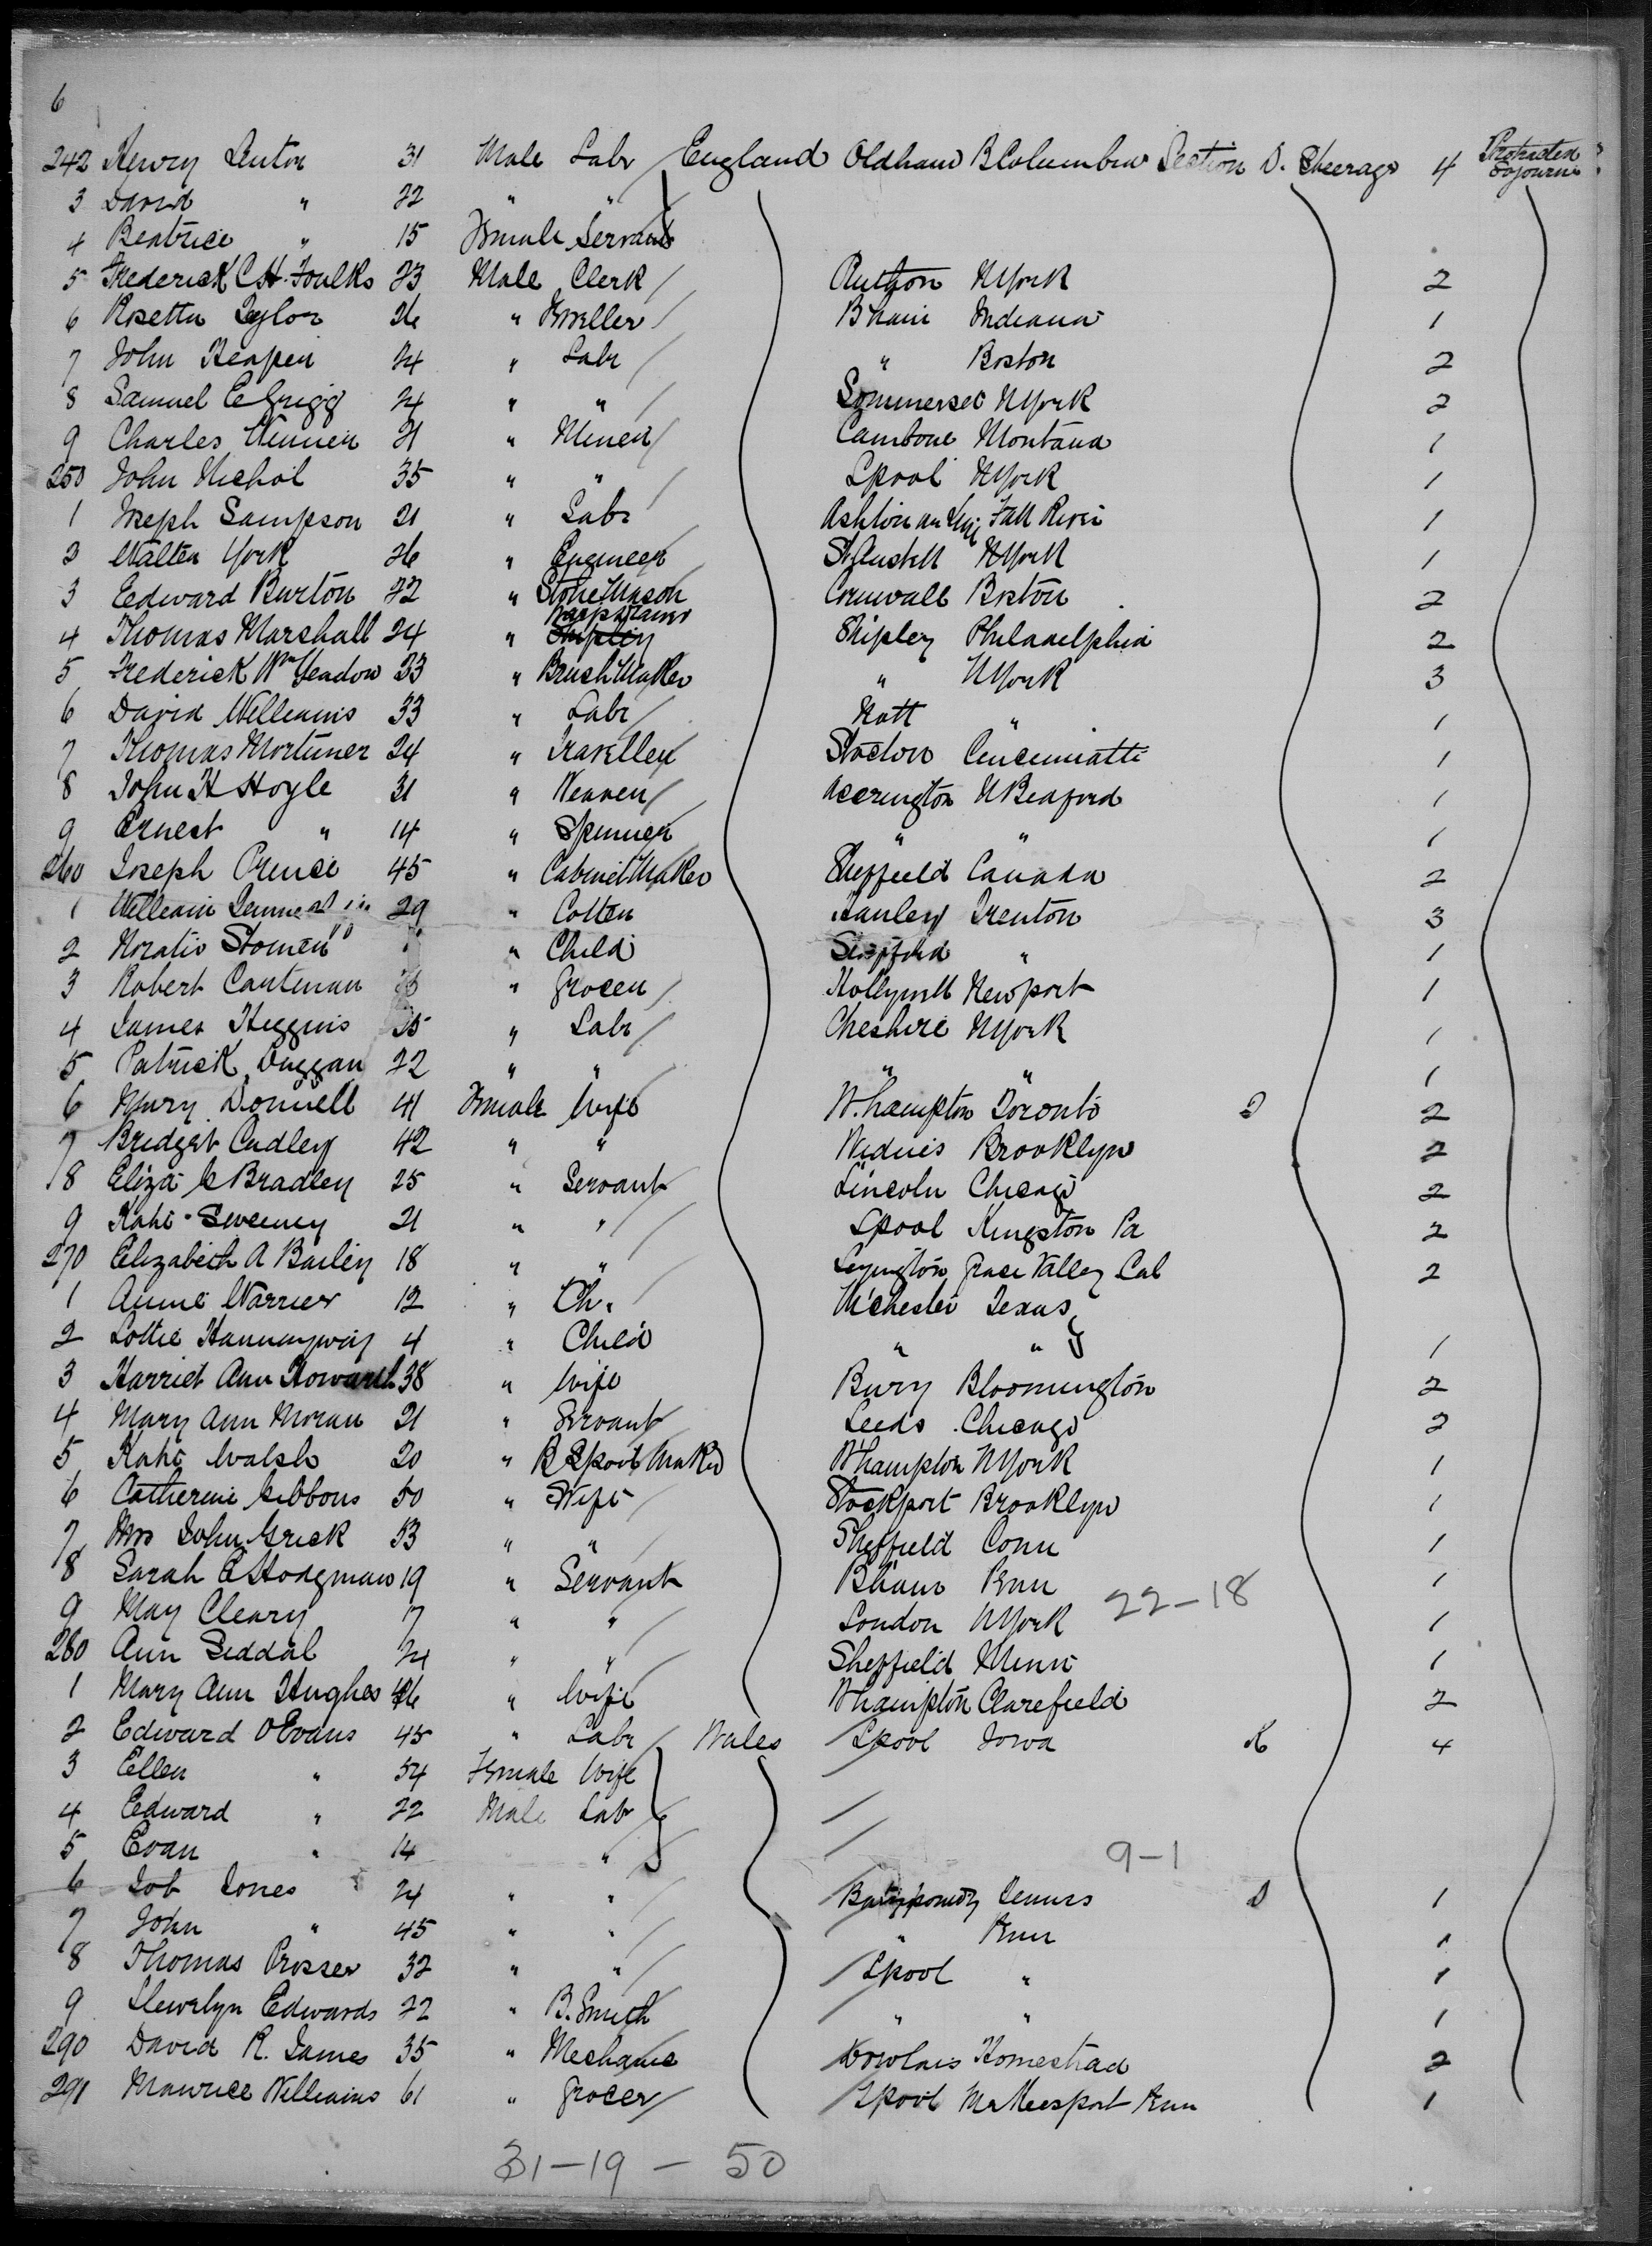 6
242 Henry Linton 31 Male Labr England Oldham B Columbia Section D. Steerage 4 Protracted Sojourn
3 David " 22 " "
4 Beatrice " 15 Female Servant
5 Frederick C H Foulks 23 Male Clerk NYork 2
6 Rosetta Taylor 26 " B'ham Indiana 1
7 John 24 " Labr " Boston 2
8 Samuel E Grigg 24 " " Sommerset NYork 2
9 Charles 21 " Miner Cambone Montana 1
250 John Nichol 35 " " Lpool NYork 1
1 Joseph Sampson 21 " Labr Ashton un Line Fall River 1
2 Walter York 26 " Engineer St Austell NYork 1
3 Edward Burton 22 " Stone Mason Cornwall Boston 2
4 Thomas Marshall 24 " Shipley Philadelphia 2
5 Frederick Wm Yeadon 23 " Brush Maker " NYork 3
6 David Williams 33 " Labr " 1
7 Thomas Mortimer 24 " Traveller Cincinnatti 1
8 John H Hoyle 31 " Weaver Accrington N Beaford 1
9 Ernest " 14 " Spinner " " 1
260 Joseph Prince 45 " Cabinet Maker Sheffield Canada 2
1 William 29 " Hanley Trenton 3
2 Horatio " Child " 1
3 Robert " Grocer Hollywell Newport 1
4 James Higgins 25 " Labr Cheshire NYork 1
5 Patrick Duggan 22 " " " " 1
6 Mary Donnell 41 Female Wife W.hampton Toronto 2
7 Bridget Cudley 42 " " Widnis Brooklyn 2
8 Eliza C Bradley 25 " Servant Lincoln Chicago 2
9 Kate Sweeney 21 " " Lpool Kingston Pa 2
270 Elizabeth A Bailey 18 " " Grace Valley Cal 2
1 Annie Warrier 12 " Ch. M'chester Texas
2 Lottie 4 " Child " " 1
3 Harriet Ann Howarth 38 " Wife Bury Bloomington 2
4 Mary Ann Moran 21 " Servant Leeds Chicago 2
5 Kate Walsh 20 " Maker W'hampton NYork 1
6 Catherine Gibbons 50 " Wife Stockport Brooklyn 1
7 Mrs John Grick 53 " " Sheffield Conn 1
8 Sarah E Hodgman 19 " Servant B'ham Penn 1
22-18
9 May Cleary 17 " " London NYork 1
280 Ann Siddal 24 " " Sheffield Minn 1
1 Mary Ann Hughes 26 " Wife W'hampton Clarefield 2
2 Edward O Evans 45 " Labr Wales Lpool Iowa 4
3 Ellen " 54 Female Wife
4 Edward " 22 Male Labr
5 Evan " 14 "
9-1
6 Job Jones 24 " " D 1
7 John " 45 " " " Penn 1
8 Thomas Prosser 32 " " Lpool " 1
9 Llewelyn Edwards 22 " B. Smith " " 1
290 David R. James 35 " Mechanic Dowlais Homestead 2
291 Maurice Williams 61 " Grocer Lpool McKeesport Penn 1
31-19-50